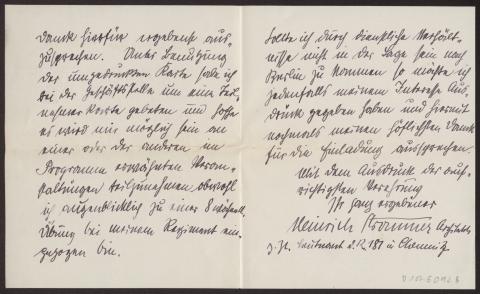 Dank hierfür ergebenst aus-
zusprechen. Unter Benutzung
der umgedruckten Karte habe ich
bei der Geschäftsstelle um eine Teil-
nehmerkarte gebeten und hoffe
es wird mir möglich sein an
einer oder der anderen im
Programm erwähnten Veran-
staltungen teilzunehmen, obwohl
ich augenblicklich zu einer 8 wöchentl.
Übung bei meinem Regiment ein-
gezogen bin.
Sollte ich durch dienstliche Verhält-
nisse nicht in der Lage sein nach
Berlin zu kommen so möchte ich
jedenfalls meinem Interesse Aus-
druck gegeben haben und hiermit
nochmals meinen höflichsten Dank
für die Einladung aussprechen.
Mit dem Ausdruck der auf-
richtigsten Verehrung
Ihr ganz ergebener
Heinrich Straumer Architekt
z. Zt. Leutnant d. R. 181 in Chemnitz